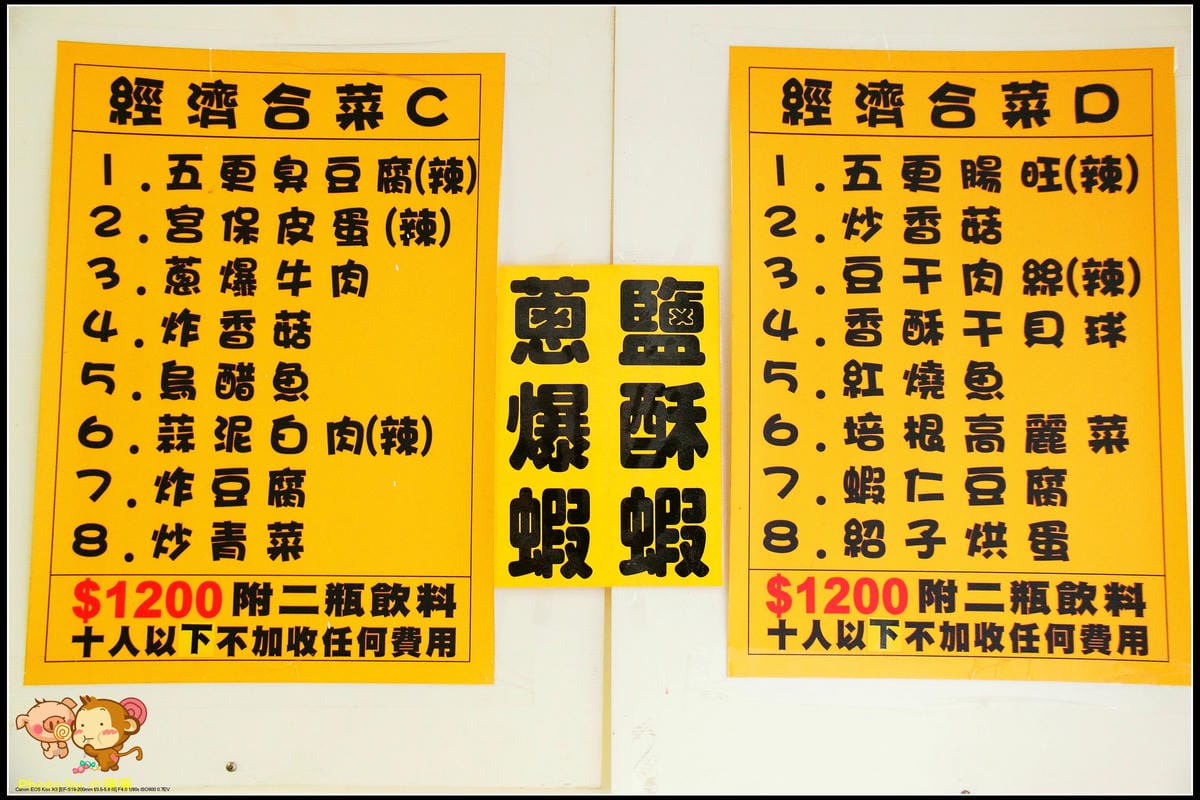 經濟合菜C
1.五更臭豆腐(辣)
2.宮保皮蛋(辣)
3.蔥爆牛肉
4.炸香菇
5.烏醋魚
6.蒜泥白肉(辣)
7.炸豆腐
8.炒青菜
$1200附二瓶飲料
十人以下不加收任何費用
鹽酥蝦
蔥爆蝦
經濟合菜D
1.五更腸旺(辣)
2.炒香菇
3.豆干肉絲(辣)
4.香酥干貝球
5.紅燒魚
6.培根高麗菜
7.蝦仁豆腐
8.紹子烘蛋
$1200附二瓶飲料
十人以下不加收任何費用